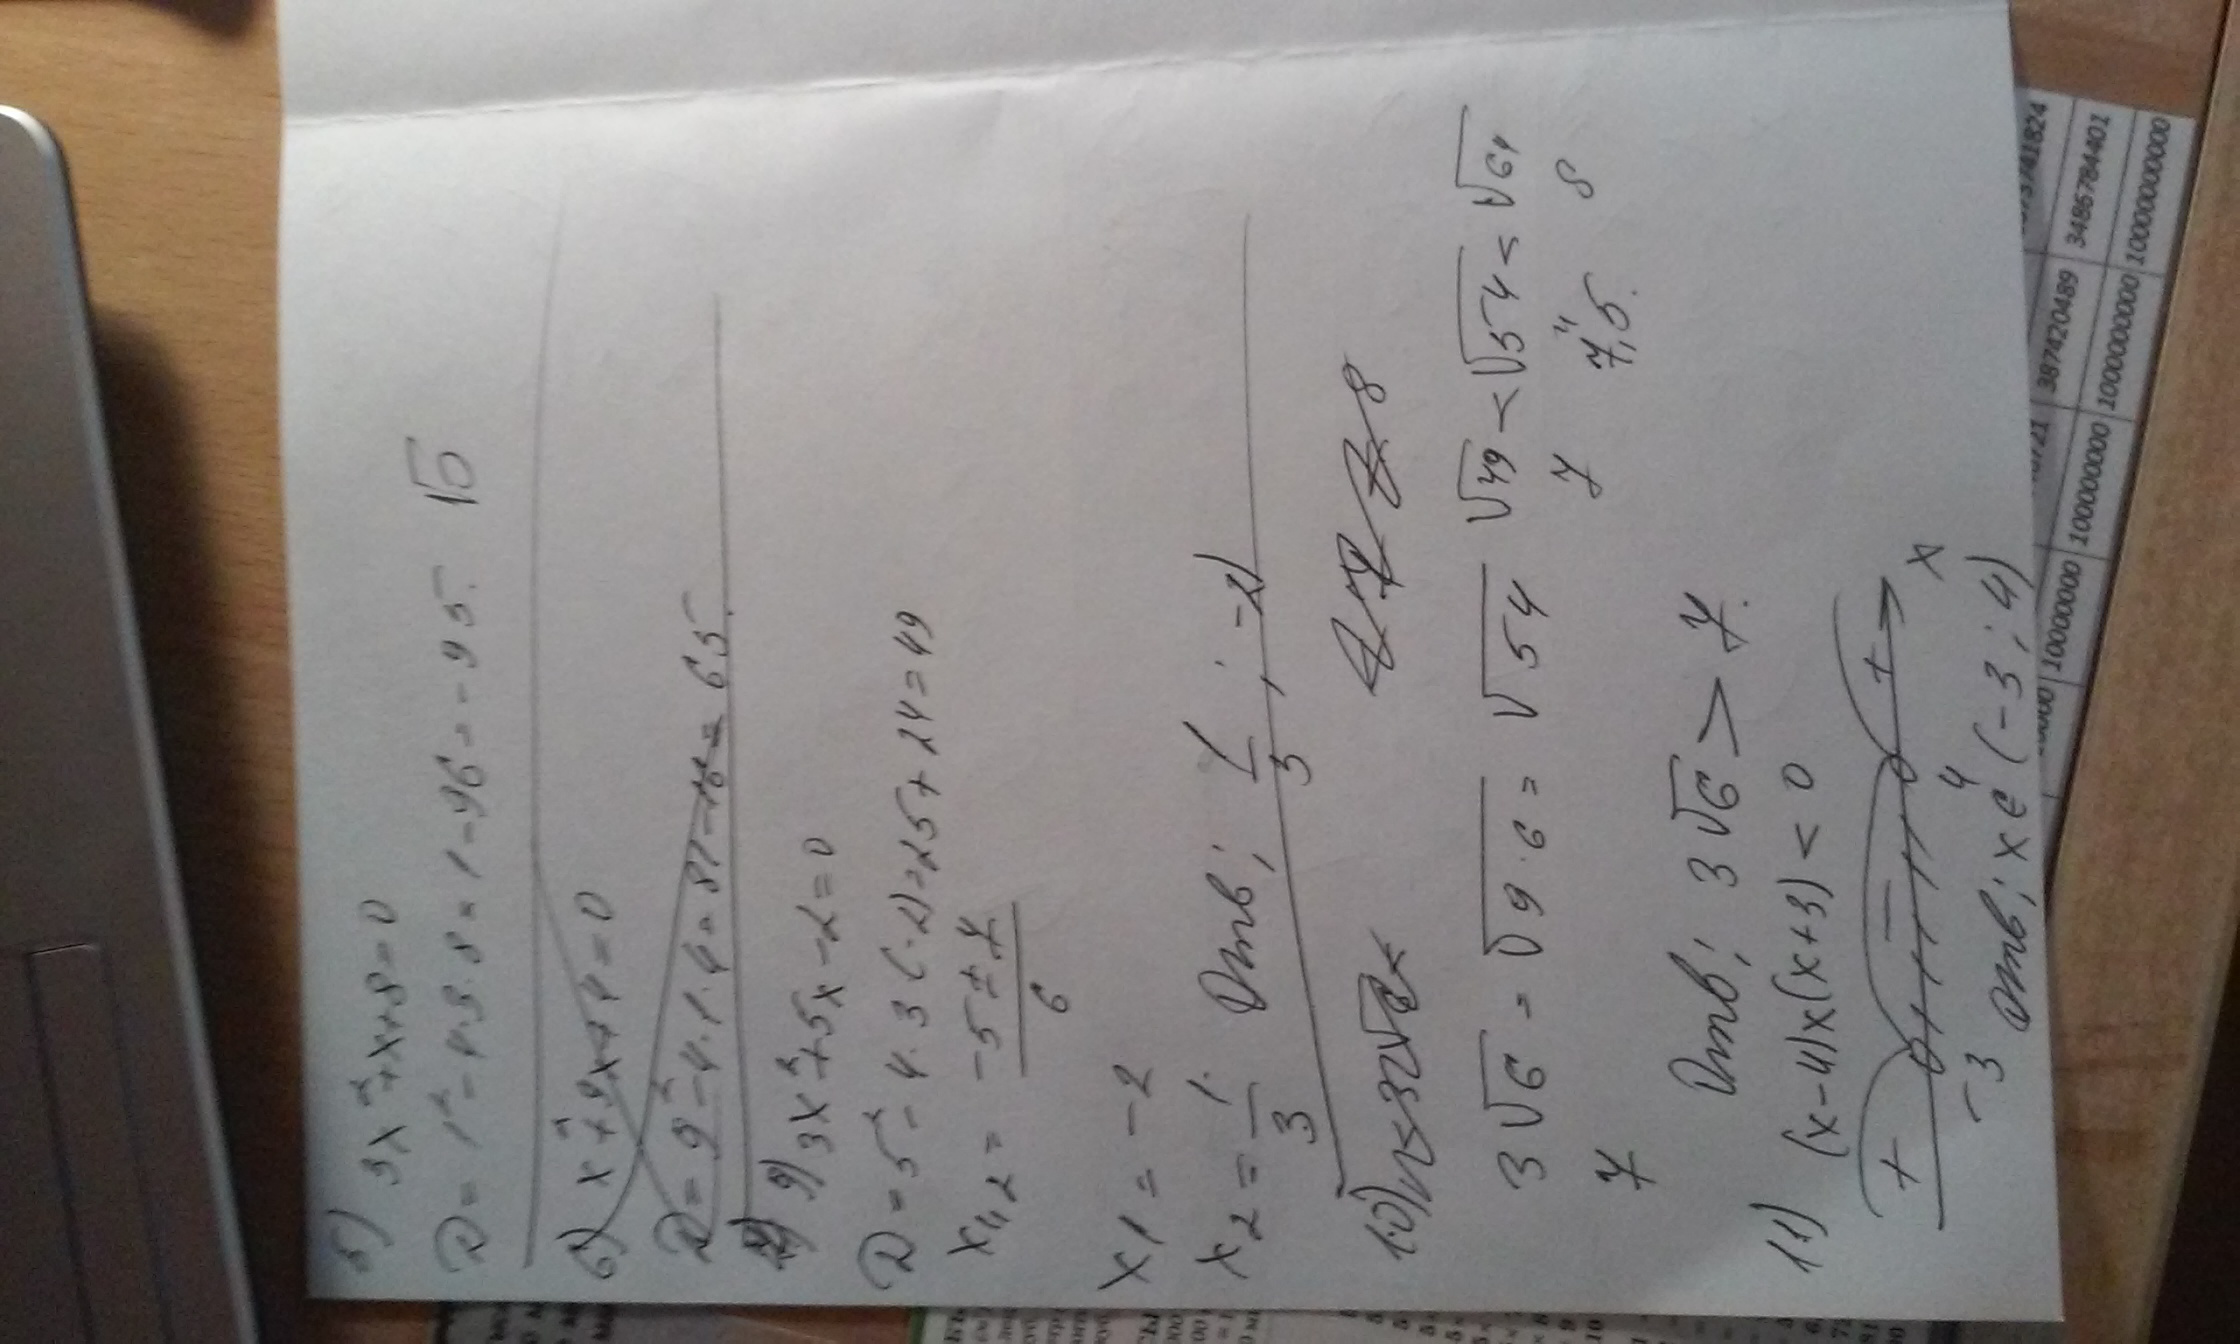 5) 3x²+x+8=0
D=1²-4·3·8=1-96=-95. √D
6) x²+9x+4=0
D=9²-4·1·4=81-16=65.
9) 3x²+5x-2=0
D=5²-4·3(-2)=25+24=49
x₁,₂= -5±7
6
x1=-2
x2= 1
3
Отв; 1/3; -2)
10)
3√6=√9·6=√54 √49<√54<√64
7 7,5. 8
7
Отв; 3√6>7.
11) (x-4)x(x+3)<0
+ - + x
-3 4
отв; x∈(-3;4)
387420489 3486784401
10000000 100000000 1000000000 10000000000